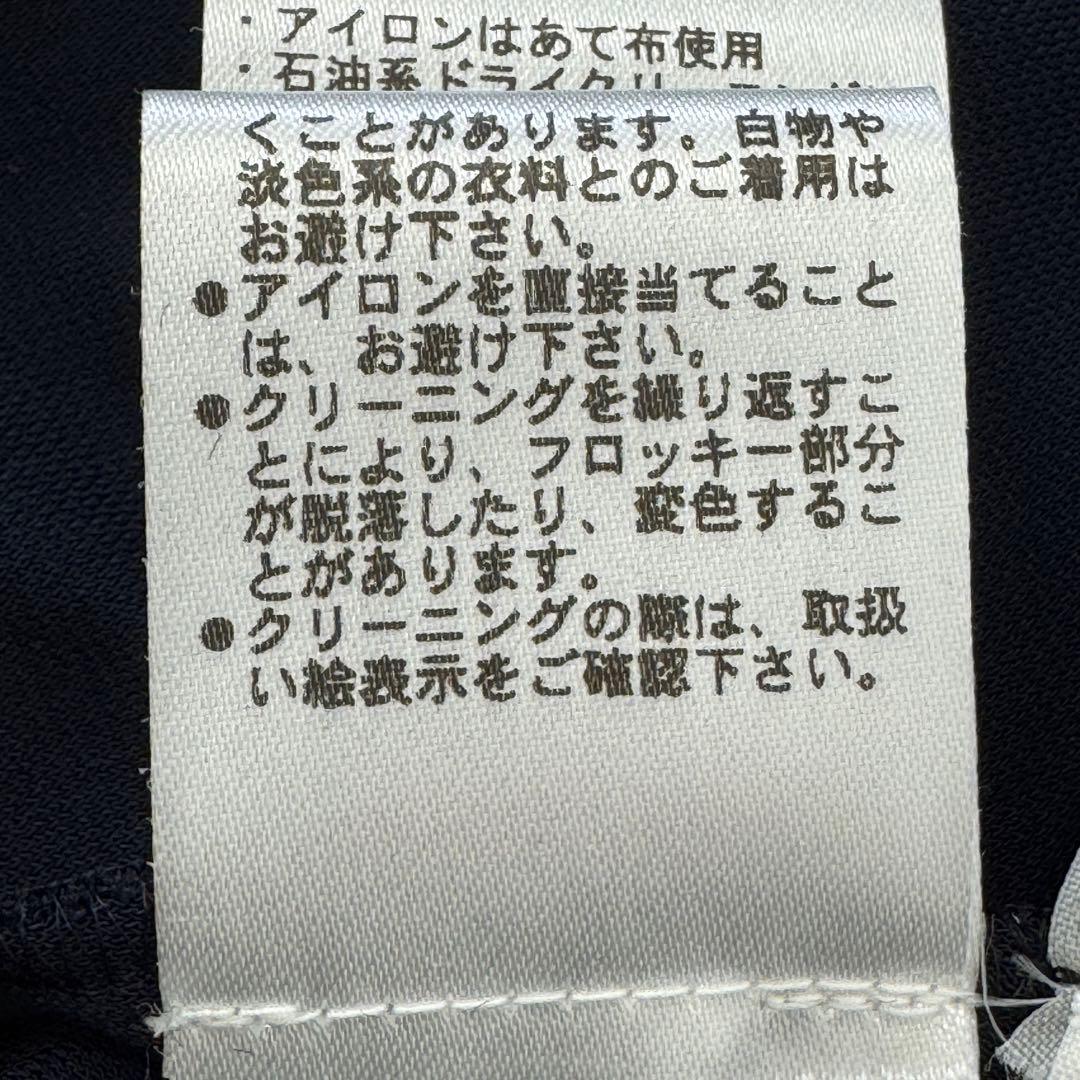 ・アイロンはあて布使用
・石油系ドライクリーニング
くことがあります。白物や
淡色系の衣料とのご着用は
お避け下さい。
●アイロンを直接当てること
は、お避け下さい。
●クリーニングを繰り返すこ
とにより、フロッキー部分
が脱落したり、変色するこ
とがあります。
●クリーニングの際は、取扱
い絵表示をご確認下さい。